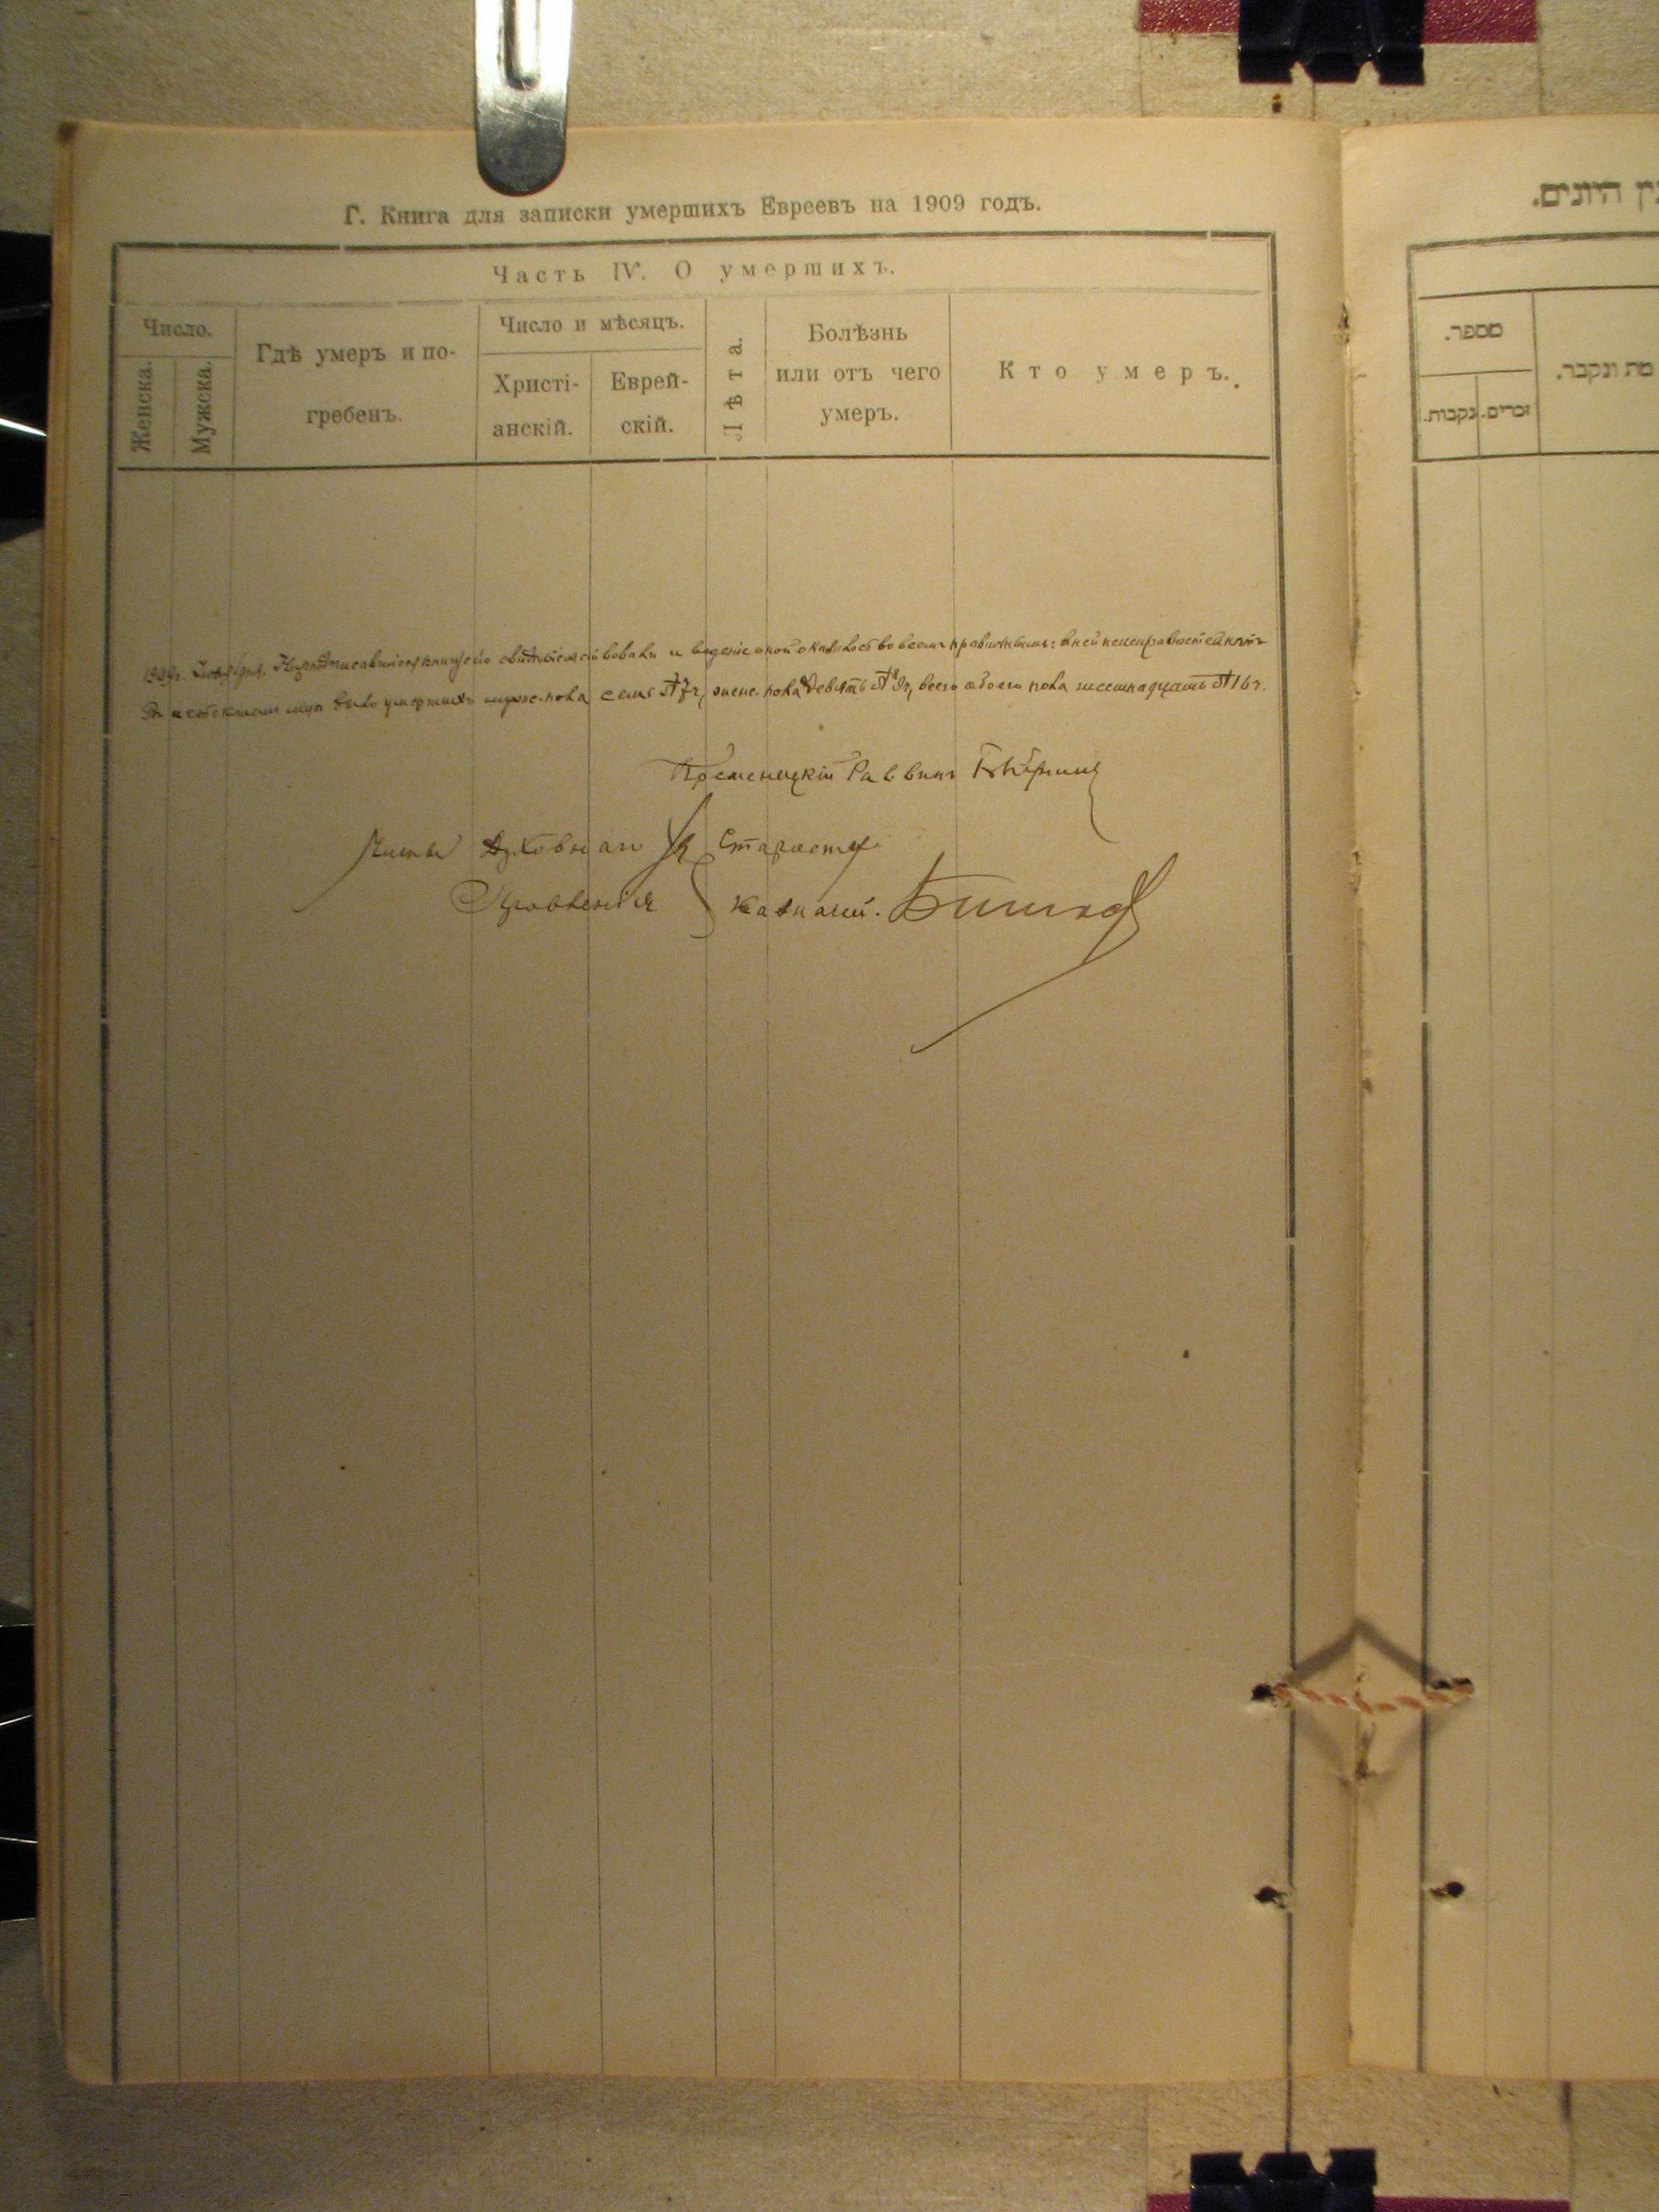 Г. Книга для записки умершихъ Евреевъ на 1909 годъ.
Часть IV. О умершихъ.
Число.
Женска.
Мужска.
Гдѣ умеръ и по-
гребенъ.
Число и мѣсяцъ.
Христі-
анскій.
Еврей-
скій.
Лѣта.
Болѣзнь
или отъ чего
умеръ.
Кто умеръ.
1909 г. книгу сію свидѣтельствовали и веденіе оной оказалось во всемъ правильнымъ; въ ней неисправностей нѣтъ
было умершихъ мужс. пола семь 7, женс. пола девять 9, всего обоего пола шестнадцать 16.
Кременецкій Раввинъ
Члены Духовнаго Староста
Правленія Казначей.
ין היונים.
מספר.
זכרים.
נקבות.
מת ונקבר.